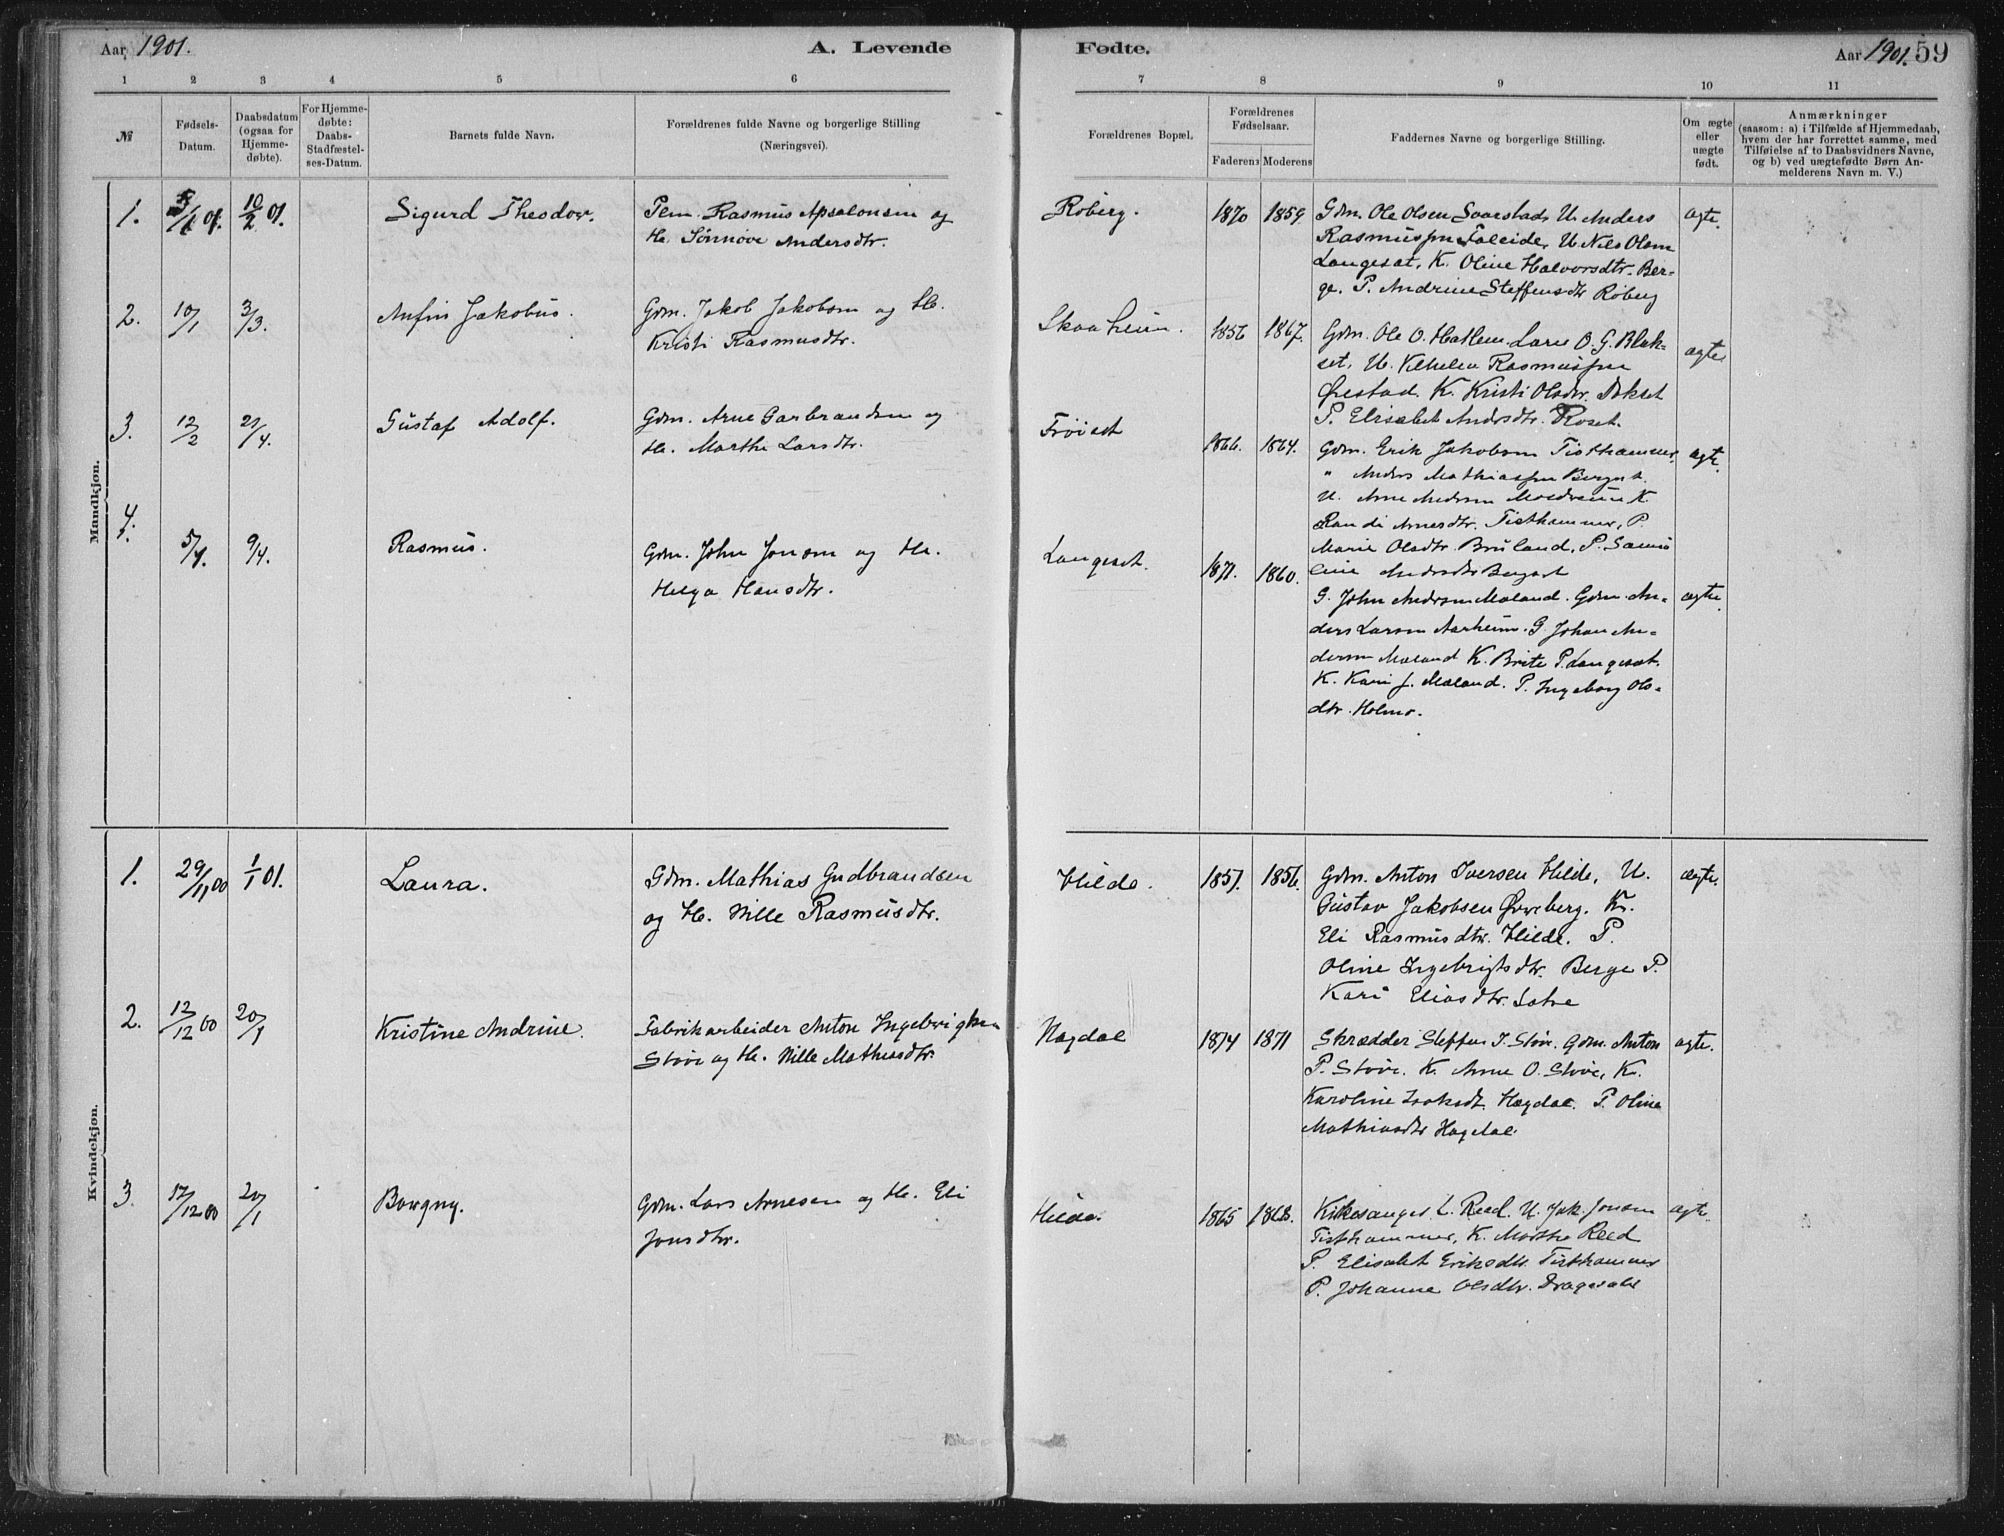 Aar 1901.
A. Levende
Fødte.
Aar 1901. 59
1 2 3 4 5 6 7 8 9 10 11
№
Fødsels-
Datum.
Daabsdatum
(ogsaa for
Hjemme-
døbte).
For Hjemme-
døbte:
Daabs-
Stadfæstel-
ses-Datum.
Barnets fulde Navn.
Forældrenes fulde Navne og borgerlige Stilling
(Næringsvei).
Forældrenes Bopæl.
Forældrenes
Fødselsaar.
Faderens Moderens
Faddernes Navne og borgerlige Stilling.
Om ægte
eller
uægte
født.
Anmærkninger
(saasom: a) i Tilfælde af Hjemmedaab,
hvem der har forrettet samme, med
Tilføielse af to Daabsvidners Navne,
og b) ved uægtefødte Børn An-
melderens Navn m. V.)
Mandkjøn.
1.
10/2 01.
Sigurd Theodor.
Rasmus Apsalonsen og
H. Sønnøve Andersdtr.
Røberg.
1870 1859
Gdm. Ole Olsen U. Anders
Rasmussen Faleide, U. Nils Olsen
Langesæt, K. Oline Halvorsdtr. Ber-
ge. P. Andrine Steffensdtr Røberg
ægte.
2. 10/1 3/3.
Anfin Jakobus.
Gdm. Jakob Jakobsen og H.
Kristi Rasmusdtr.
Skaaheim.
1856 1867.
Gdm. Ole O. Hatlem. Lars O. G. Blak-
set, U. Rasmussen
Ørestad. K. Kristi Olsdtr.
P. Elisabet Andersdtr. Roset.
ægte
3. 12/2 21/4.
Gustaf Adolf.
Gdm. Arne Garbrandsen og
H. Marthe Larsdtr.
Frøiset
1866. 1864.
Gdm. Erik Jakobsen Tisthammer.
" Anders Mathiassen Bergset.
U. Arne Andersen K.
Randi Arnesdtr. Tisthammer, P.
Marie Olsdtr. Bruland, P.
Andersdtr Bergset
ægte.
4. 5/4. 9/4.
Rasmus.
Gdm. John Jonsen og H.
Helga Hansdtr.
Langeset.
1871. 1860.
G. John Andersen Maland. Gdm. An-
ders Larsen Aarheim. G Johan An-
dersen Maland K. Brite P. Langeset.
K. Kari J. Maland. P. Ingeborg Ols-
dtr. Holme.
ægte.
Kvindekjøn.
1. 29/11 00 1/1 01.
Laura.
Gdm. Mathias Gudbrandsen
og H. Nille Rasmusdtr.
Hilde.
1857. 1856.
Gdm. Anton Iversen Hilde, U.
Gustav Jakobsen Øvreberg. K.
Eli Rasmusdtr. Hilde. P.
Oline Ingebrigtsdtr. Berge P.
Kari Eliasdtr. Sætre
ægte.
2. 12/12 00 20/1
Kristine Andrine.
Fabrikarbeider Anton Ingebrigtsen
Støve og H. Nille Mathiasdtr.
Hagdal
1874 1871
Skrædder Steffen I. Støve. Gdm. Anton
P. Støve. K. Anne O. Støve, K.
Karoline Isaksdt. Hægdal. P. Oline
Mathiasdtr Hagdal.
ægte.
3. 17/12 00 20/1
Borgny.
Gdm. Lars Arnesen og H. Eli
Jonsdtr.
Hilde.
1865 1868.
Kirkesanger L. Reed. U. Jak. Jonsen
Tisthammer, K. Marthe Reed
P. Elisabet Eriksdtr. Tisthammer
P. Johanne Olsdtr. Dragesæt
ægte.